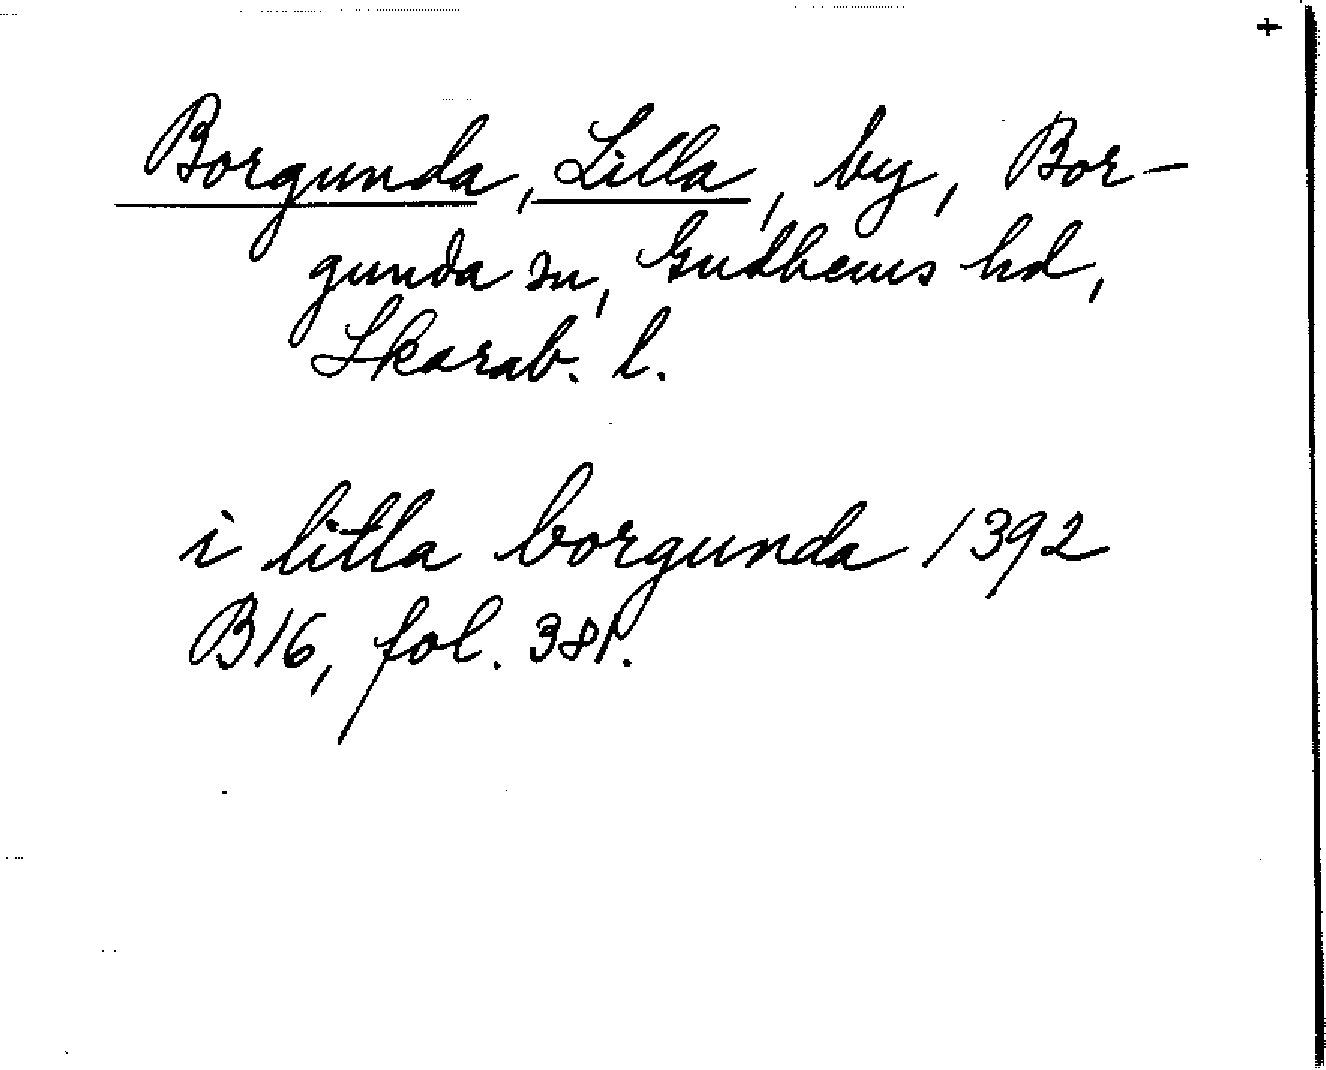 +
Borgunda, Lilla, by, Bor-
gunda sn, Gudhems hd,
Skarab. l.
i litla borgunda 1392
B16, fol. 381.